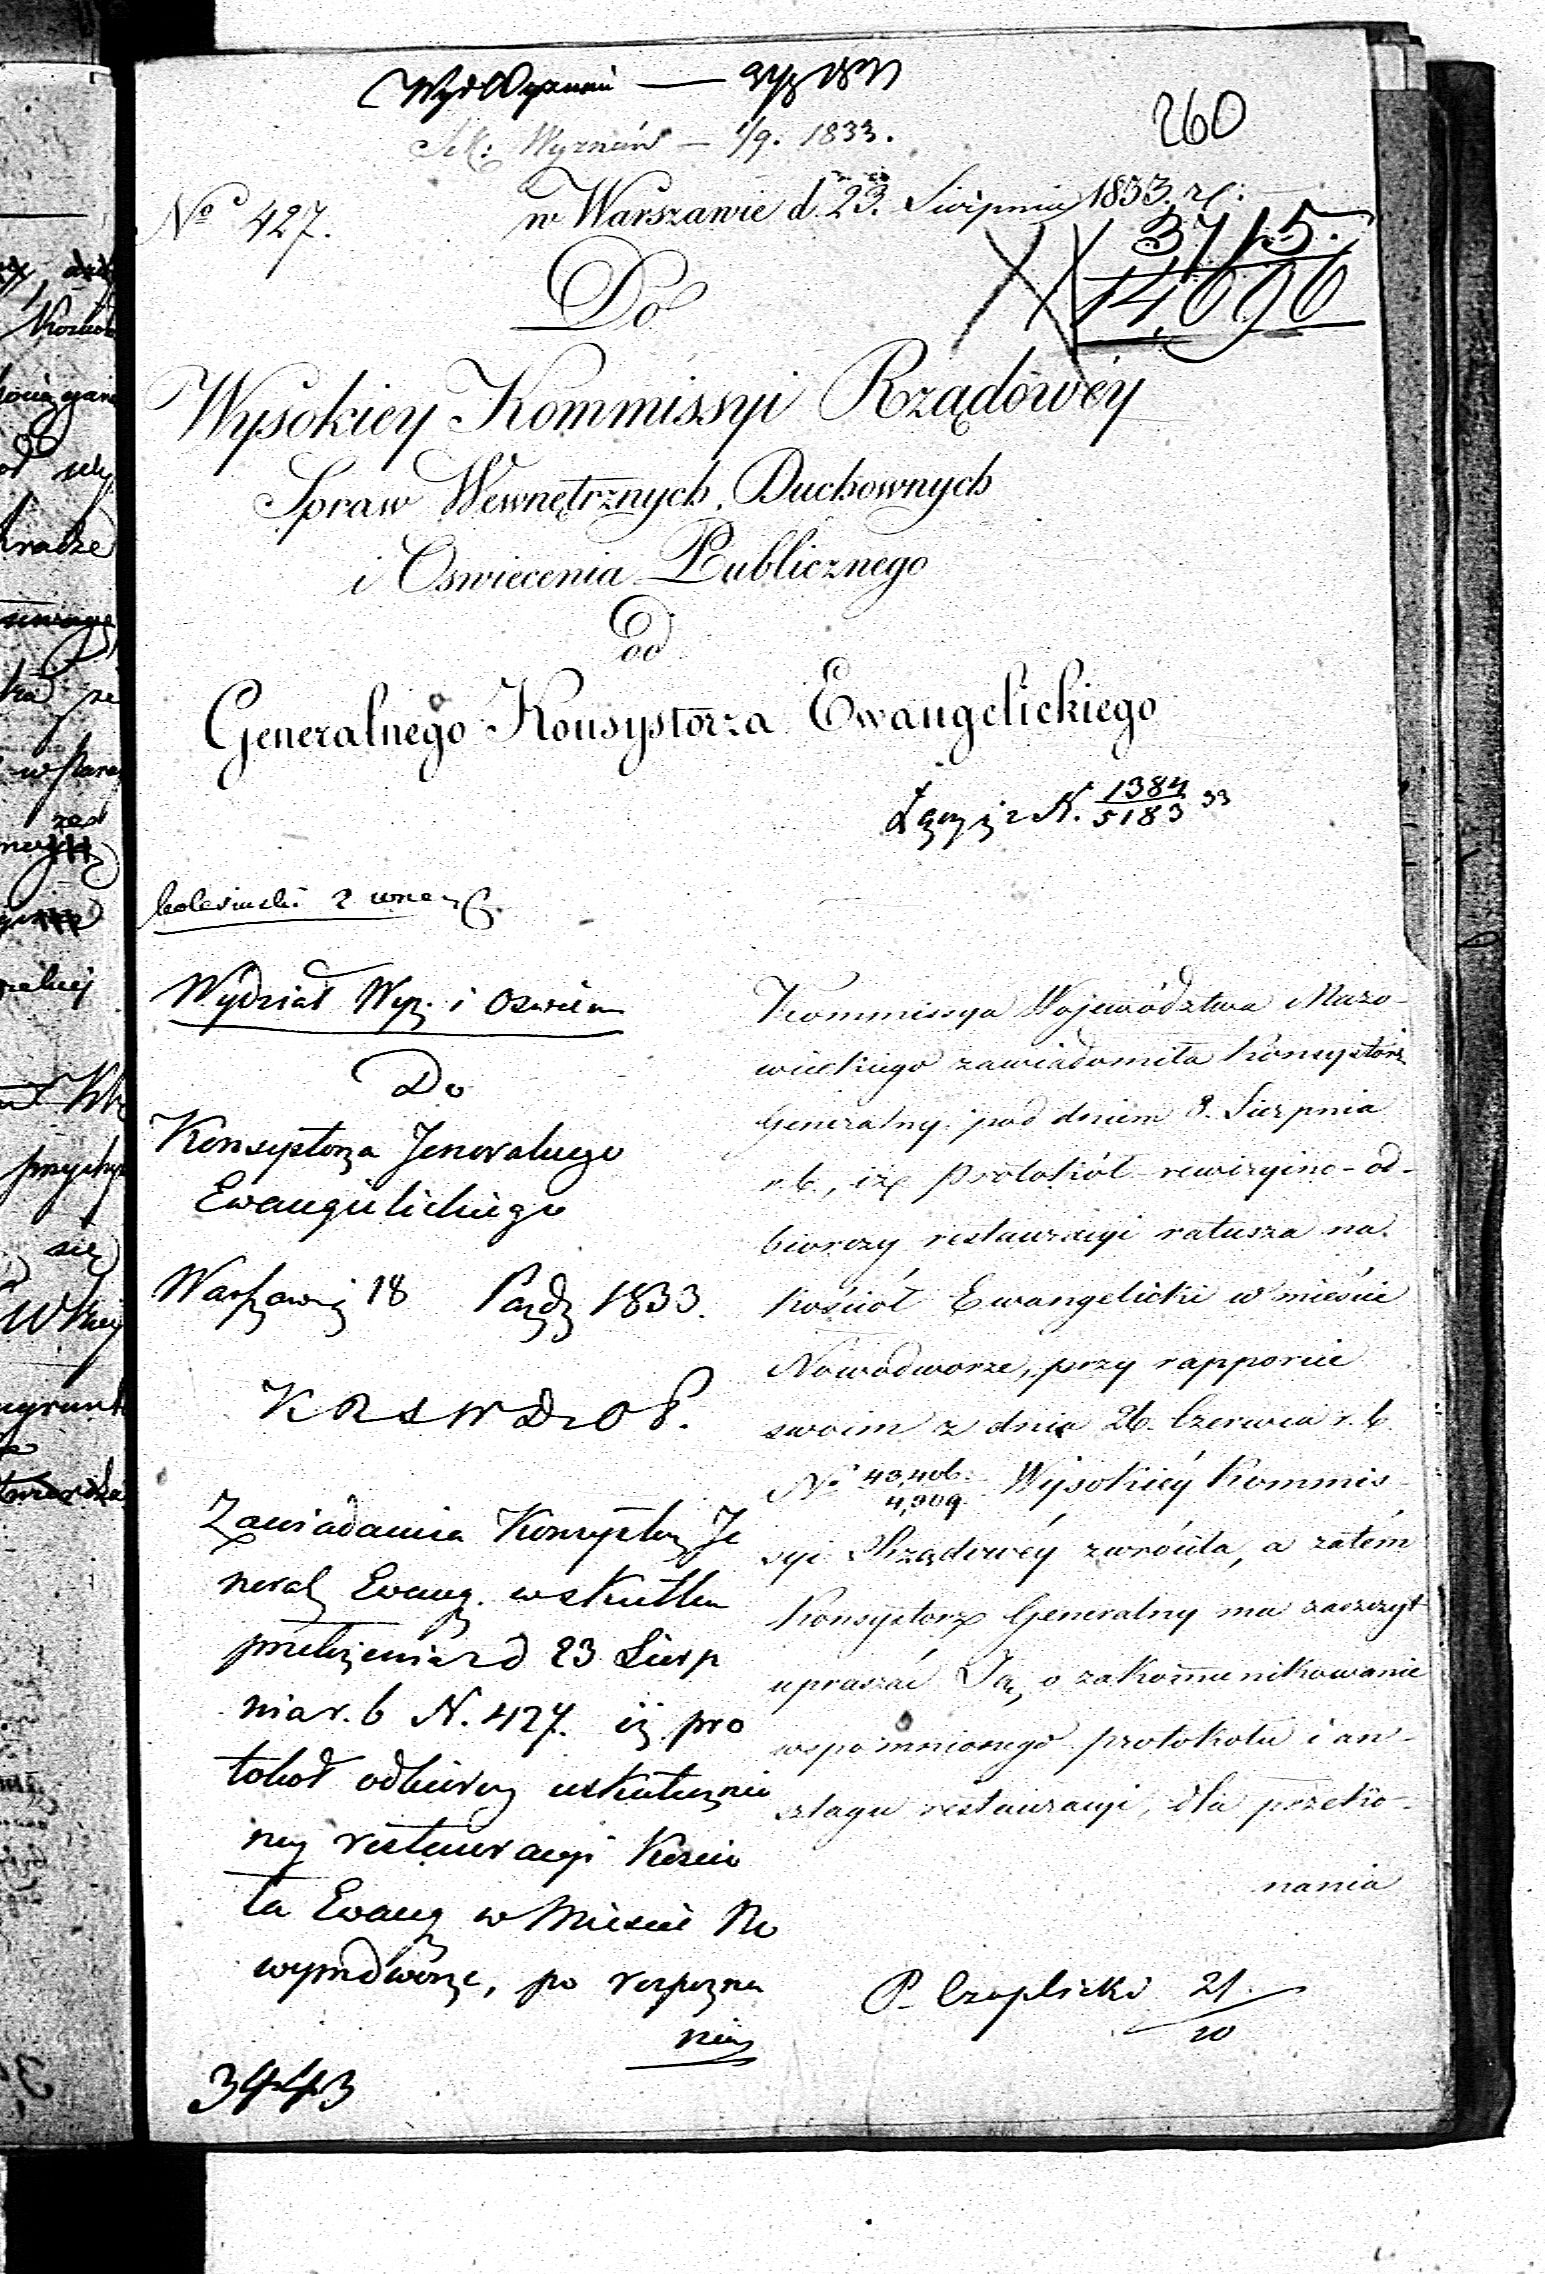 Wyd Wyznań
Sek: Wyznań — 1/9. 1833.
260
No 427.
w Warszawie d. 23. Sierpnia 1833. r.
3715.
14,696
Do
Wysokiey Kommissyi Rządowéy
Spraw Wewnętrznych, Duchownych
i Oswiecenia Publicznego
od
Generalnego Konsystorza Ewangelickiego
Łączy się z N. 1384/5183 33
Wydział Wyz. i Oswiec
Do
Konsystorza Jeneralnego
Ewangielickiego
Warszawie 18 Paźdz 1833.
K R S W D i O P.
Zawiadamia Konsystorz Je
neral Ewang. w skutku
przełożenia z d 23 Sierp
nia r. b N. 427. iż pro
tokoł odbiorczy uskutecznio
ney restauracyi Kościo
ła Ewang w Mieście No
wymdworze, po rozpozna
niu
3443
Kommissya Województwa Mazo-
wieckiego zawiadomiła Konsystorz
Generalny pod dniem 8. Sierpnia
r. b., iż protokół rewizyino-od-
biorczy restauracyi ratusza na
kościoł Ewangelicki w mieście
Nowodworze, przy rapporcie
swoim z dnia 26. Czerwca r. b.
No 43,406./4,309. Wysokiéy Kommis-
syi Rządowéy zwróciła, a zatém
Konsystorz Generalny ma zaszczyt
upraszać Ją, o zakommunikowanie
wspomnionego protokołu i an-
szlagu restauracyi, dla przeko-
nania
P. Czaplicki 21/10